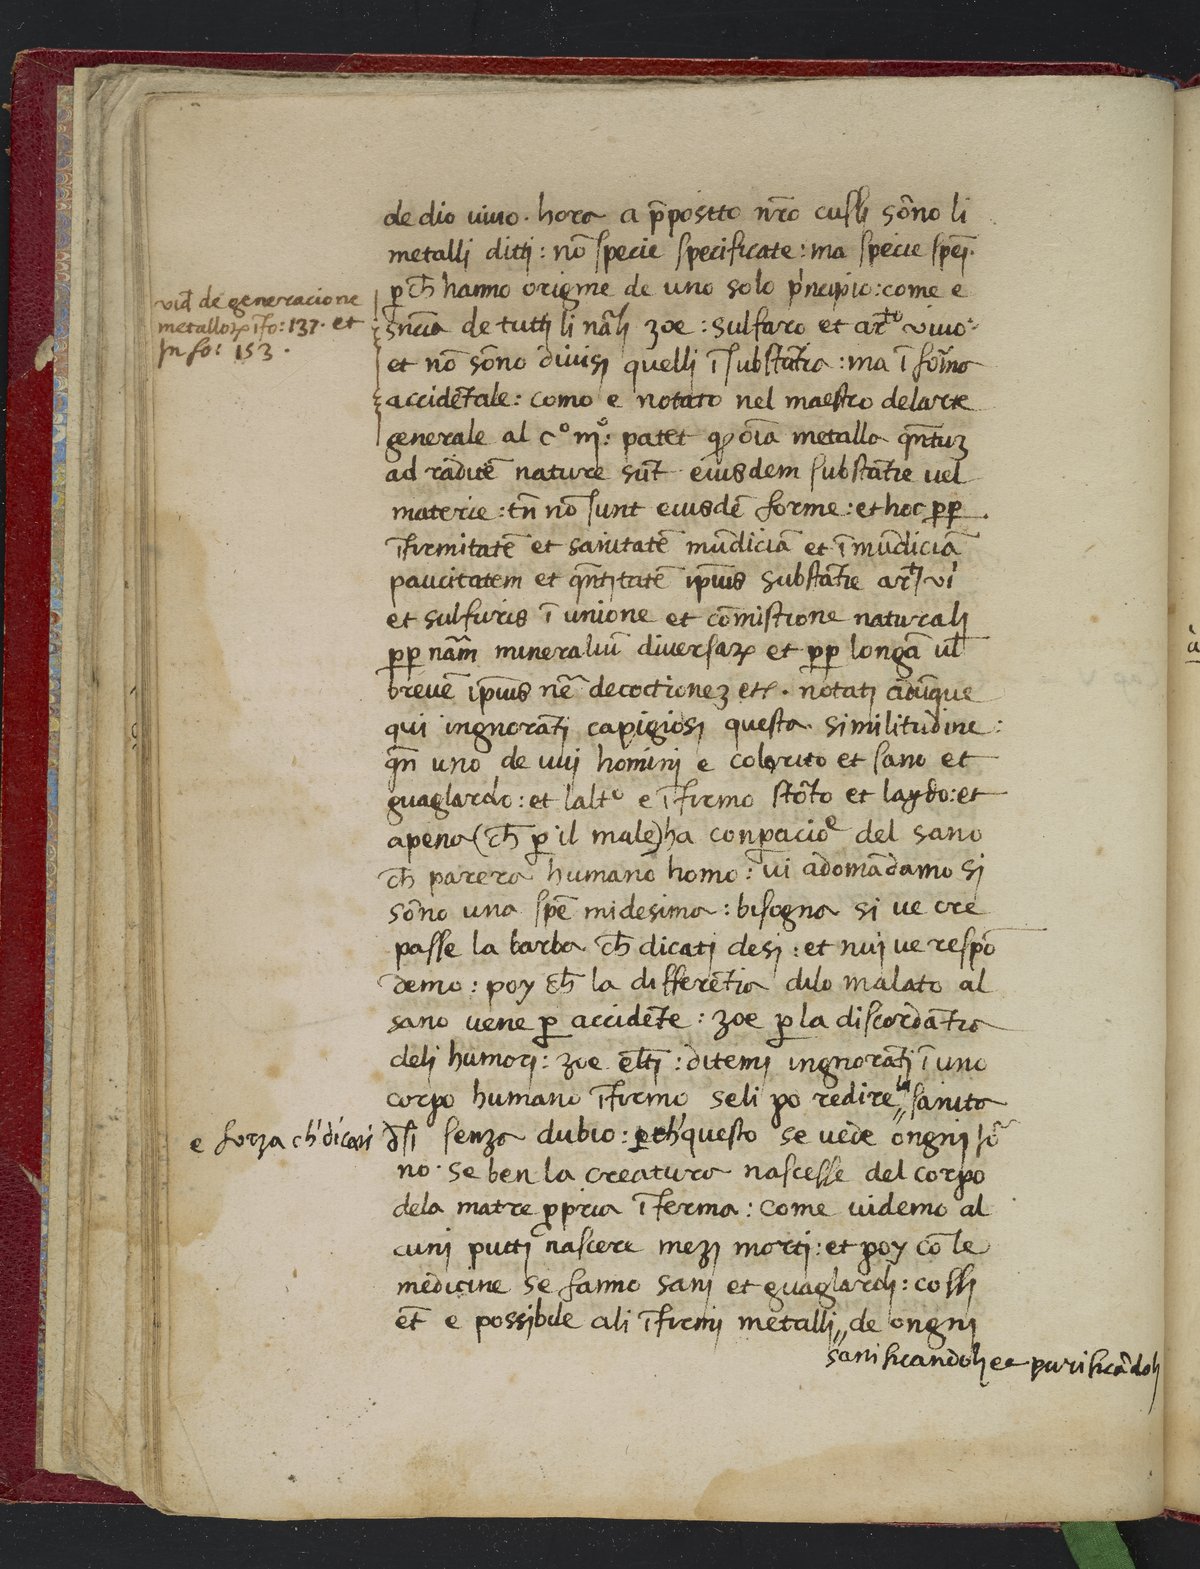 de dio viuo. hora a p̄postto nr̄o cussi sōno li
metalli ditti: nō specie specificate: ma specie sp̄ei.
p̱ ch̄ hanno origine de uno solo p'ncipio: come e
vid̄ de generacione
metalloꝝ ī fo: 137. et
in fo: 153.
sn̄cia de tutti li nāli zoe: sulfaro et arᵗᵒ vivo:
et nō sōno diuisi quelli ī substātia: ma ī forma
accidētale: como e notato nel maestro delarte
generale al c° m°: patet ꝙ oīa metalla qn̄tuȝ
ad radicē nature sūt eiusdem substātie uel
materie: tn̄ nō sunt eiusdē forme: et hoc ꝑꝑ
īfirmitatē et sanitatē mūdiciā et īmūdiciā
paucitatem et qn̄titatē ip̄ius substātie arᵗⁱ vi
et sulfuris ī unione et cōmistione naturali
ꝑꝑ nām mineraliū diversaꝝ et ꝑꝑ longā ul̄
brevē ip̄ius decoctioneȝ etc. notati adūque
qui ingnorāti capigiosi questa similitudine:
qn̄ uno de uui homini e colorito et sano et
guagliardo: et laltᵒ e īfirmo stōto et laydo: et
apena (ch̄ ꝑ il male) ha conpacioᵉ del sano
ch̄ parera humano homo: vi adomādamo si
sōno una spē midesima: bisogna si ve cre
passe la barba ch̄ dicati desi: et nui ve respō
demo: poy ch̄ la differētia dilo malato al
sano vene ꝑ accidēte: zoe ꝑ la discordātia
deli humori: zoe ditemi ingnorāti ī uno
corpo humano īfirmo seli po redire la sanita
e forza ch' dicati
dsi senza dubio: ꝑch' questo se vede ongni
no. se ben la creatura nascesse del corpo
dela matre ꝓpria īferma: come videmo al
cuni putti nascere mezi morti: et poy cō le
medicine se fanno sani et guagliardi: cossi
et̄ e possibile ali īfirmi metalli de ongni
sanificandoli et purificādoli